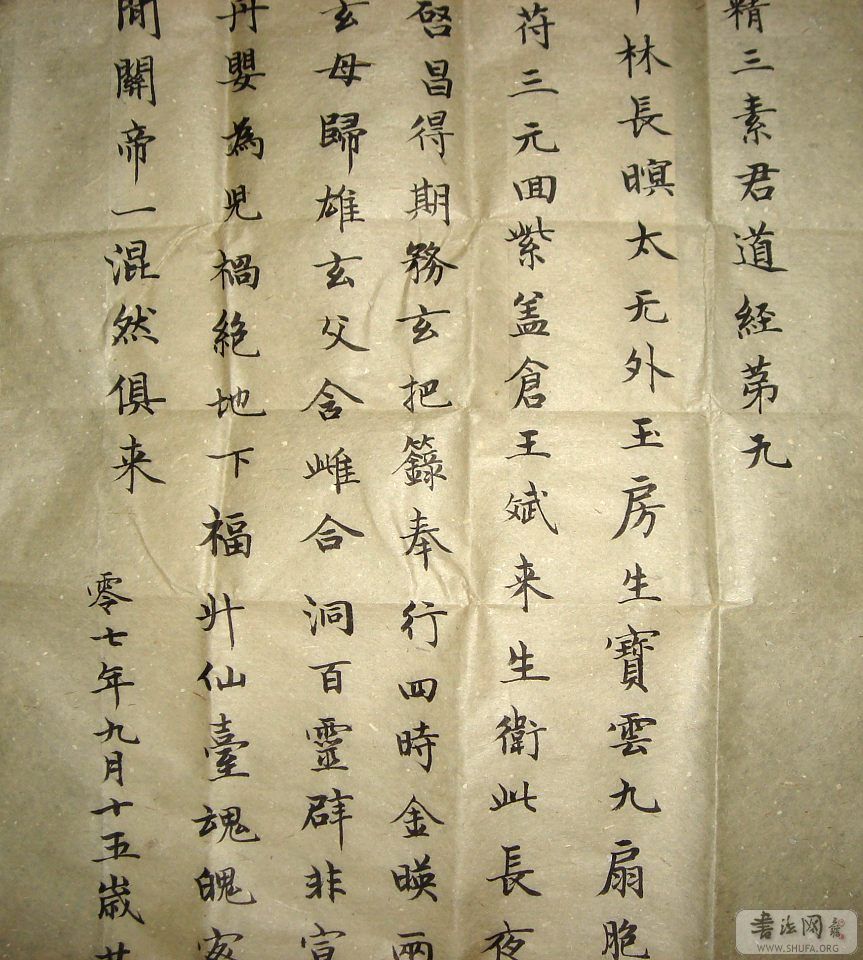 精三素君道經苐九
林長暝太无外玉房生寶雲九扇胞
苻三元囬紫盖倉王斌来生衛此長夜
啓昌得期務玄把籙奉行四時金暎兩
玄母歸雄玄父含雌合洞百靈辟非
丹嬰為児禍絶地下福升仙臺魂魄
開關帝一混然俱来
零七年九月十五歳
書法网
WWW.SHUFA.ORG